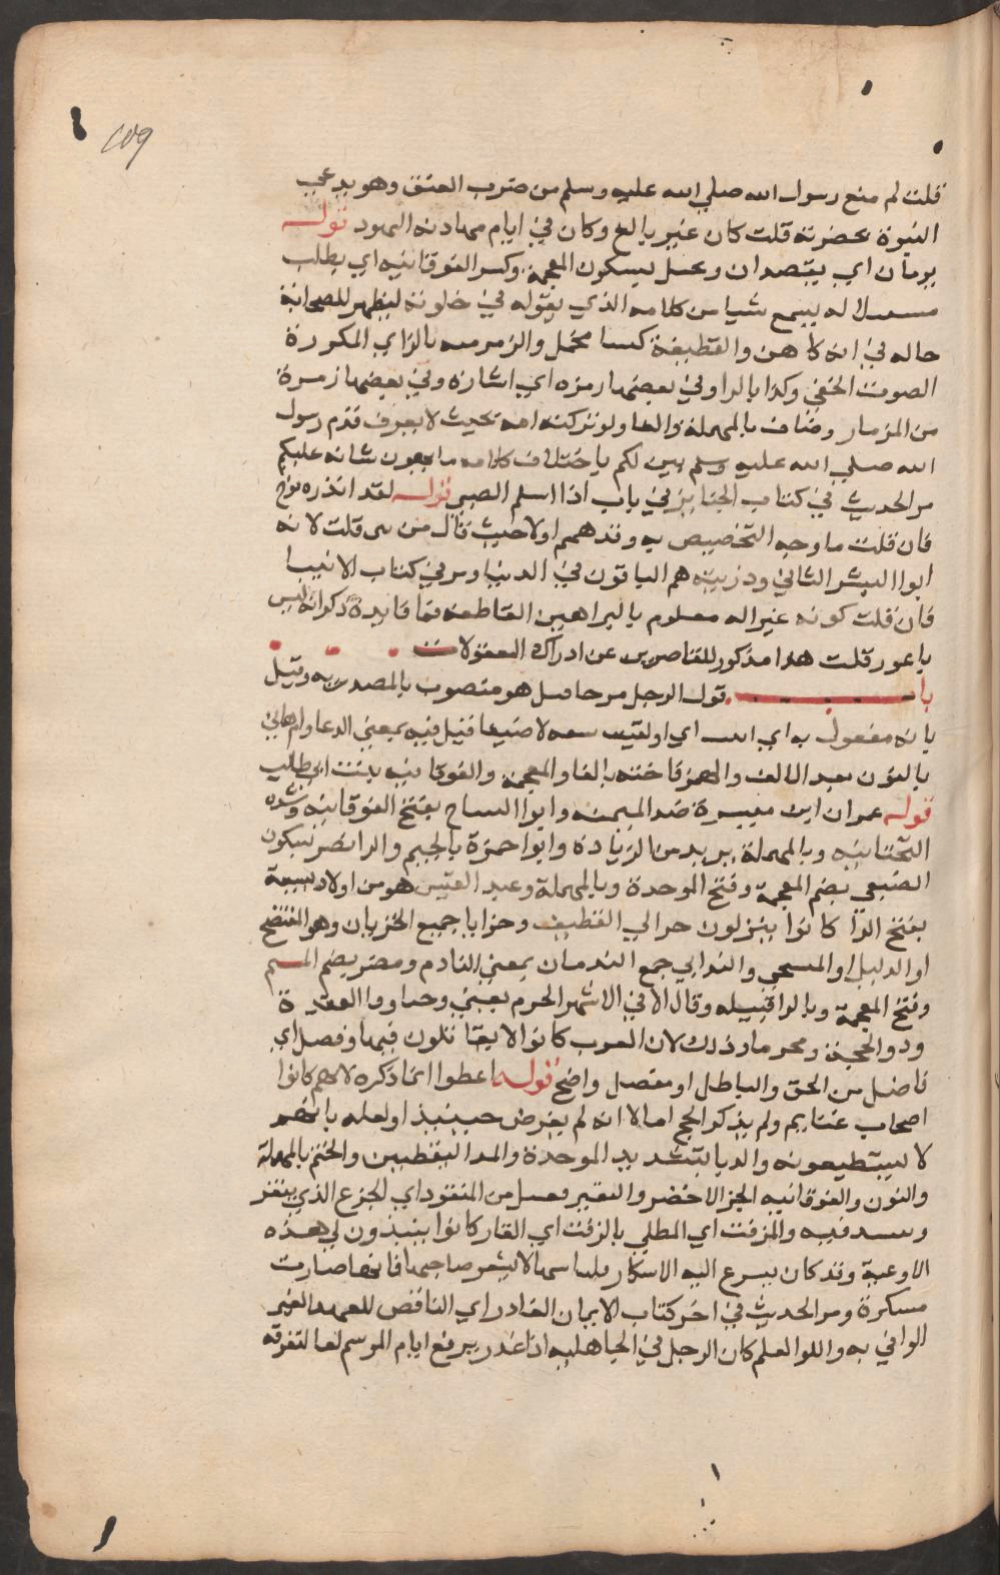 ١٥٩
قلت لم منع رسول الله صلي الله عليه وسلم من ضرب العنق وهو يدعي
النبوة بحضرته قلت كان غير بالغ وكان في ايام مهادنة اليهود قوله
يومان اي يقصدان ويختل بسكون المعجمة وكسر الفوقانية اي يطلب
مستغفلا له ليسمع شيا من كلامه الذي يقوله في خلوته ليظهر للصحابة
حاله في انه كاهن والقطيفة كسا مخمل والزمزمة بالزاي المكررة
الصوت الخفي وكذا بالراء وفي بعضها رمزة اي اشارة وفي بعضها زمرة
من المزمار وصاف بالمهملة والفا ولو تركته امه بحيث لا يعرف قدوم رسول
الله صلي الله عليه وسلم بين لكم باختلاف كلامه ما يهون شانه عليكم
مر الحديث في كتاب الجنايز في باب اذا اسلم الصبي قوله لقد انذره نوح
فان قلت ما وجه التخصيص به وقد عمم اولا حيث قال من نبي قلت لانه
ابوا البشر الثاني وذريته هم الباقون في الدنيا ومر في كتاب الانبيا
فان قلت كونه غير اله معلوم بالبراهين القاطعة فما فايدة ذكر انه ليس
باعور قلت هذا مذكور للقاصرين عن ادراك المعقولات
باب قول الرجل مرحبا قيل هو منصوب بالمصدرية وقيل
بانه مفعول به اي اتيت اي او لقيت سعة لا ضيقا فقيل فيه بمعني الدعا وام هاني
بالنون بعد الالف والهمز فاختة بالفا والمعجمة والفوقانية بنت ابي طالب
قوله عمران ابن ميسرة ضد الميمنة وابوا التياح بفتح الفوقانية وشدة
التحتانية وبالمهملة يزيد من الزيادة وابوا جمرة بالجيم والرا نصر بسكون
الضبعي بضم المعجمة وفتح الموحدة وبالمهملة وعبد القيس هو من اولاد ربيعة
بفتح الرا كانوا ينزلون حوالي القطيف وخزايا جمع الخزيان وهو المفتضح
او الذليل او المستحي والندامي جمع الندمان بمعني النادم ومضر بضم الميم
وفتح المعجمة وبالرا قبيلة وقال الا في الاشهر الحرم يعني رجبا وذا القعدة
وذو الحجة ومحرما وذلك لان العرب كانوا لا يقاتلون فيها وفصل اي
فاصل بين الحق والباطل او مفصل واضح قوله اعطوا انما ذكره لانهم كانوا
اصحاب غنايم ولم يذكر الحج اما لا انه لم يفرض حينيذ او لعلمه بانهم
لا يستطيعونه والدبا بتشديد الموحدة والمد اليقطين والحنتم بالمهملة
والنون والفوقانية الجر الاخضر والنقير فعيل من المنقور اي الجزع الذي ينقر
وينبذ فيه والمزفت اي المطلي بالزفت اي القار كانوا ينبذون في هذه
الاوعية وقد كان يسرع اليه الاسكار لا يشعر صاحبها فانها صارت
مسكرة ومر الحديث في اخر كتاب الايمان الغادر اي الناقض للعهد الغير
الوافي به واللوا العلم كان الرجل في الجاهلية اذا غدر يرفع ايام الموسم لوا لتعرفه